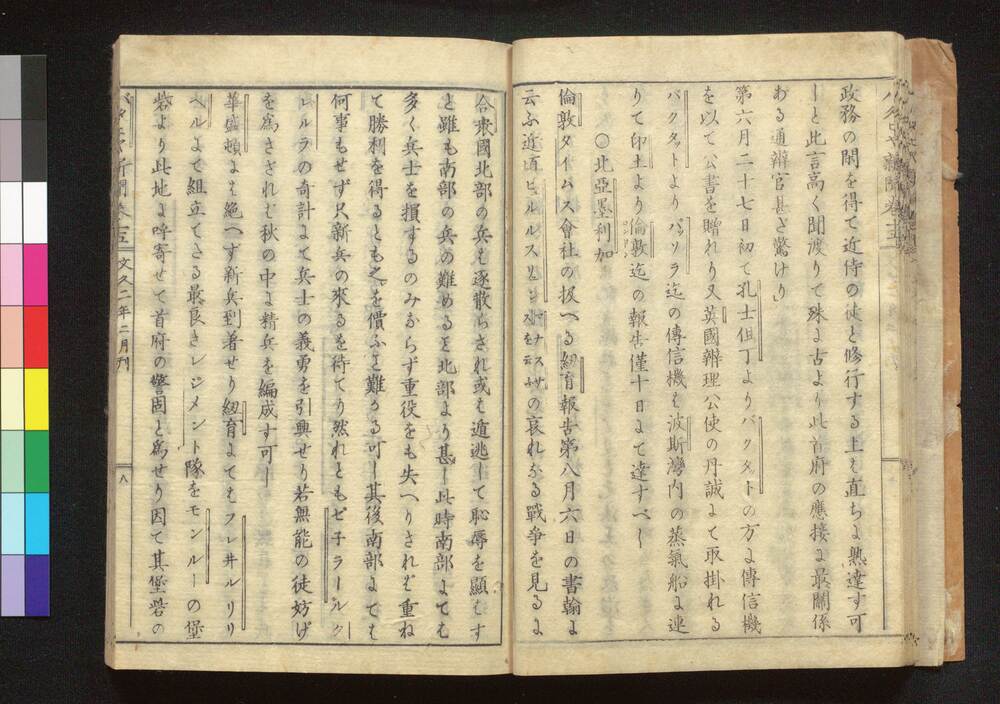 政務の間を得て近侍の徒と修行する上ハ直ちよ熟達す可
ーと此言高く聞渡りて殊よ古より此首府の應接よ最關係
ある通辯官甚ざ驚けり
第六月二十七日初て孔士但丁よりバクタットの方よ傳信機
を以て公書を贈れり又英國辨理公使の丹誠よて取掛れる
バクタットよりバソラ迄の傳信機も波斯灣内の蒸氣船よ連
りて印土より倫敦迄の報告僅十日よて達すべし
○北亞墨利加
倫敦タイムス會社の扱へる紐育報告第八月六日の書翰よ
云ふ近頃の哀れなる戰争を見るよ
合衆國北部の兵も逐散らされ或も遁逃して恥辱を顯ハす
と雖も南部の兵の難めるハ北部より甚し此時南部よても
多く兵士を損するのみならず重役をも失へりされバ重ね
て勝利を得るとも之を償ふを難かる可し其後南部よても
何事もせず只新兵の來るを待てり然れともゼ子ラール
レルラの奇計よて兵士の義勇を引興せり若無能の徒妨げ
を為さされバ秋の中よ精兵を編成す可し
華盛頓よも絶へず新兵到着せり紐育よてもフレ井ルリリ
ヘルよて組立てさる最良きレジメント隊をモンルーの堡
砦より此地よ呼寄せて首府の警固と為せり因て其堡砦の
新聞巻五 文久二年二月刊
八